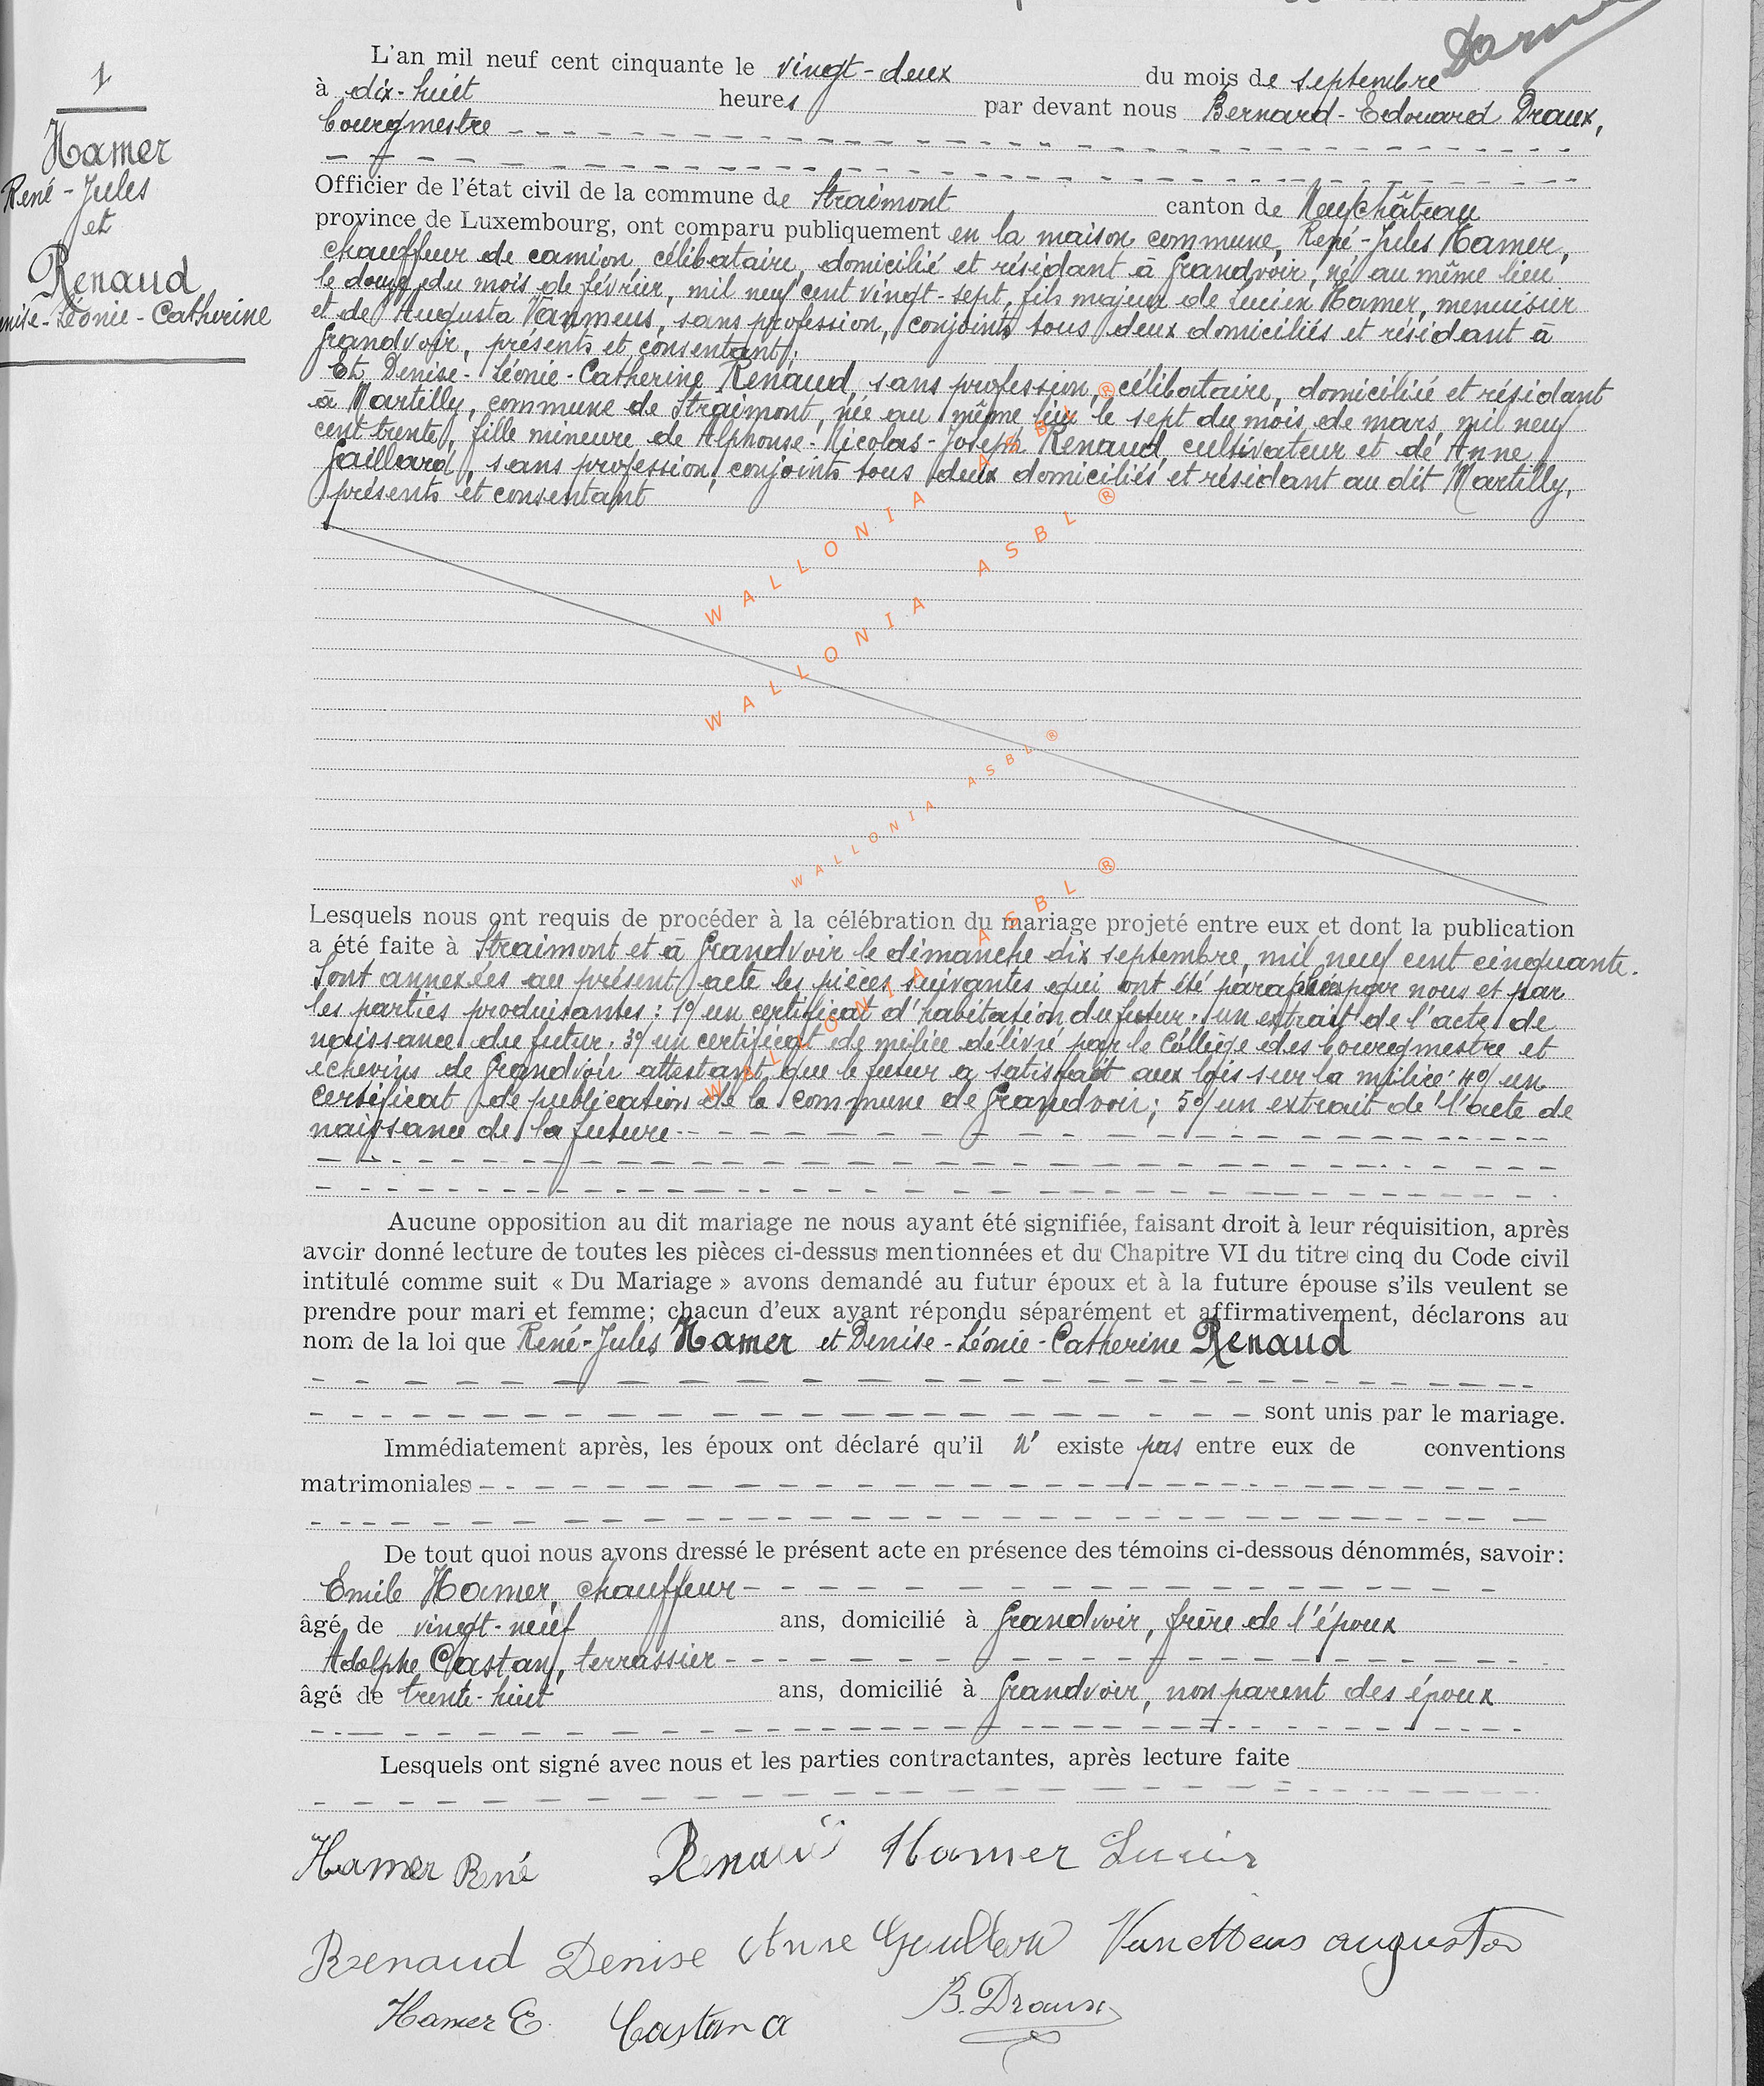 1
Hamer
René-Jules
et
Renaud
Léonie-Catherine
L'an mil neuf cent cinquante le vingt-deux du mois de septembre
à dix-huit heures par devant nous Bernard-Edouard Draux,
bourgmestre
Officier de l'état civil de la commune de Straimont canton de Neufchâteau
province de Luxembourg, ont comparu publiquement en la maison commune, René-Jules Hamer,
chauffeur de camion, célibataire, domicilié et résidant à Grandvoir, né au même lieu
le douze du mois de février, mil neuf cent vingt-sept, fils majeur de Lucien Hamer, menuisier
et de Augusta Vanmeus, sans profession, conjoints tous deux domiciliés et résidant à
Grandvoir, présents et consentant;
Et Denise-Léonie-Catherine Renaud, sans profession, célibataire, domiciliée et résidant
à Martilly, commune de Straimont, née au même lieu le sept du mois de mars mil neuf
cent trente, fille mineure de Alphonse-Nicolas-Joseph Renaud, cultivateur et de Anne
Gaillard, sans profession, conjoints tous deux domiciliés et résidant au dit Martilly,
présents et consentant
WALLONIA ASBL ®
WALLONIA ASBL ®
WALLONIA ASBL ®
WALLONIA ASBL ®
Lesquels nous ont requis de procéder à la célébration du mariage projeté entre eux et dont la publication
a été faite à Straimont et à Grandvoir le dimanche dix septembre, mil neuf cent cinquante.
Sont annexées au présent acte les pièces suivantes qui ont été paraphées par nous et par
les parties produisantes: 1°/ un certificat d'habitation du futur. un extrait de l'acte de
naissance du futur. 3°/ un certificat de milice délivré par le Collège des bourgmestre et
échevins de Grandvoir attestant que le futur a satisfait aux lois sur la milice 4°/ un
certificat de publication de la commune de Grandvoir; 5°/ un extrait de l'acte de
naissance de la future
Aucune opposition au dit mariage ne nous ayant été signifiée, faisant droit à leur réquisition, après
avoir donné lecture de toutes les pièces ci-dessus mentionnées et du Chapitre VI du titre cinq du Code civil
intitulé comme suit « Du Mariage » avons demandé au futur époux et à la future épouse s'ils veulent se
prendre pour mari et femme; chacun d'eux ayant répondu séparément et affirmativement, déclarons au
nom de la loi que René-Jules Hamer et Denise-Léonie-Catherine Renaud
sont unis par le mariage.
Immédiatement après, les époux ont déclaré qu'il n' existe pas entre eux de conventions
matrimoniales
De tout quoi nous avons dressé le présent acte en présence des témoins ci-dessous dénommés, savoir:
Emile Hamer, chauffeur
âgé de vingt-neuf ans, domicilié à Grandvoir, frère de l'époux
Adolphe Castan, terrassier
âgé de trente-huit ans, domicilié à Grandvoir, non parent des époux
Lesquels ont signé avec nous et les parties contractantes, après lecture faite
Hamer René Renaud Hamer Lucien
Renaud Denise Anne Vanmeus augusta
Hamer E. Castan A B. Draux